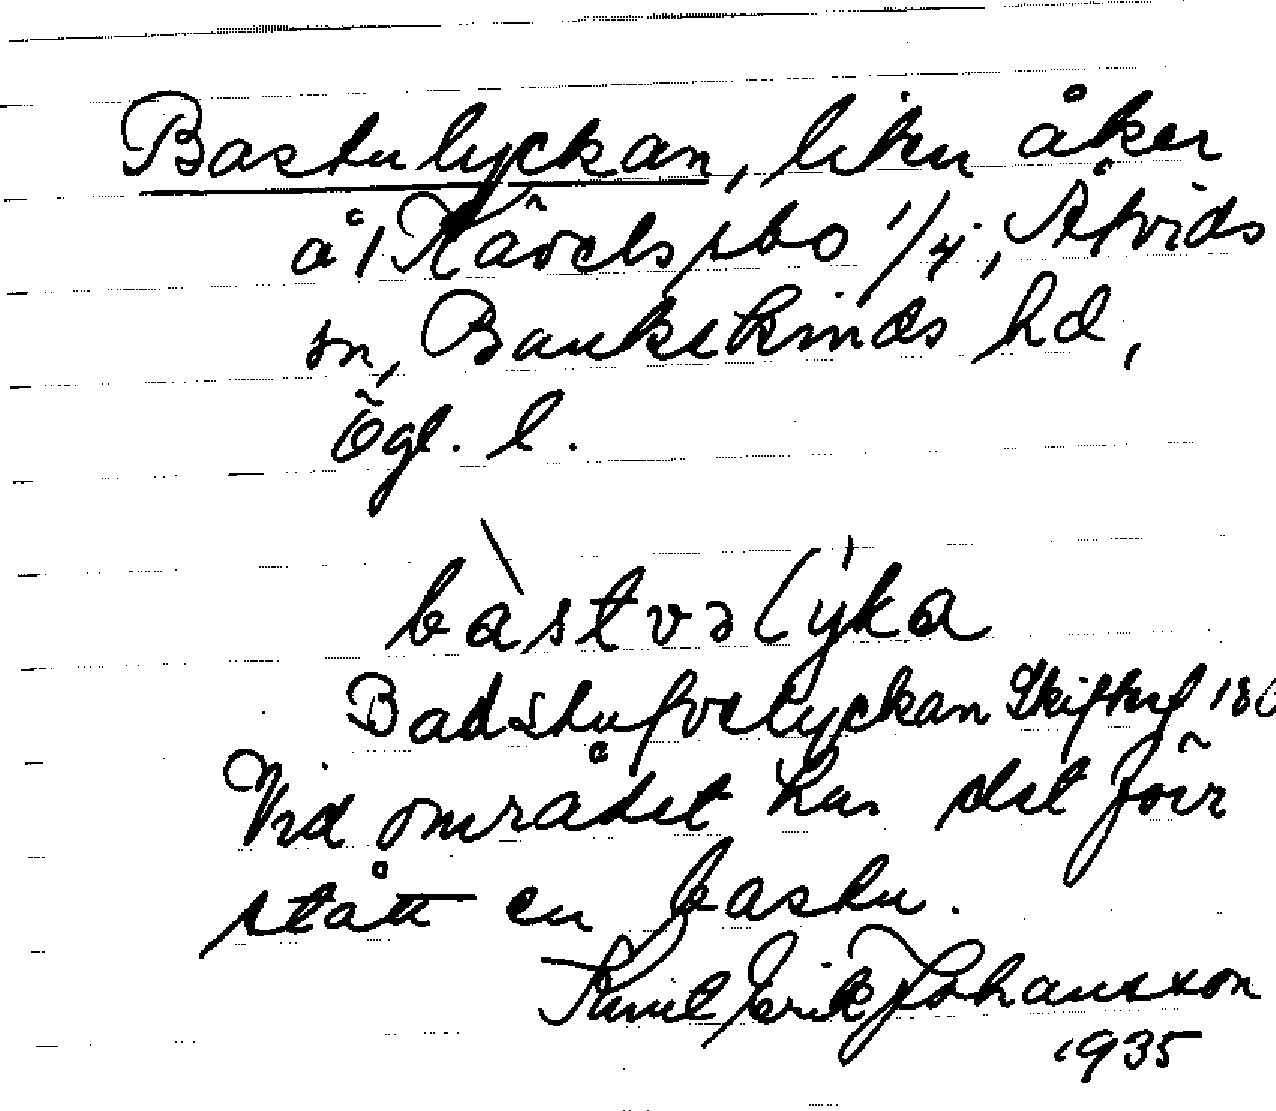 Bastulyckan, liten åker
å 1 Kårtelsbo 1/4, Åtvids
sn, Bankekinds hd,
Ögl. l.
bàstvəlýka
Badstufvelyckan Skifteshl 180
Vid området har det förr
stått en bastu.
Knut Erik Johansson
1935